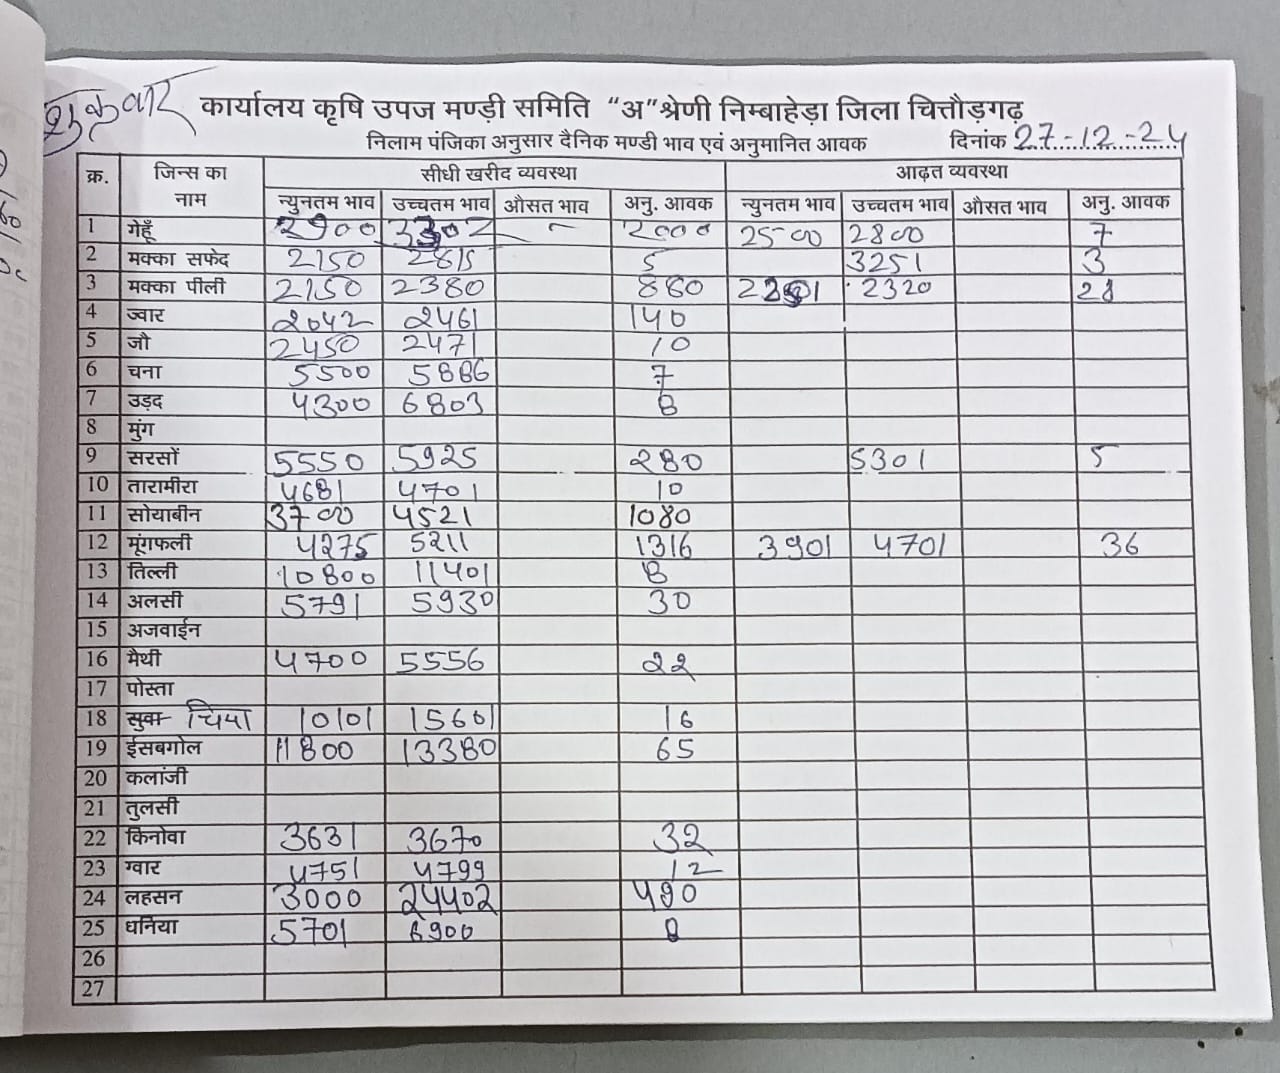 शुक्रवार
कार्यालय कृषि उपज मण्डी समिति "अ" श्रेणी निम्बाहेड़ा जिला चित्तौड़गढ़
निलाम पंजिका अनुसार दैनिक मण्डी भाव एवं अनुमानित आवक दिनांक 27-12-24
क्र. जिन्स का नाम सीधी खरीद व्यवस्था आढ़त व्यवस्था
न्युनतम भाव उच्चतम भाव औसत भाव अनु. आवक न्युनतम भाव उच्चतम भाव औसत भाव अनु. आवक
1 गेहूँ 2900 3302 - 2000 2500 2800 7
2 मक्का सफेद 2150 2815 5 3251 3
3 मक्का पीली 2150 2380 880 2320 28
4 ज्वार 2042 2461 140
5 जौ 2450 2471 10
6 चना 5500 5886 7
7 उड़द 4300 6803 8
8 मुंग
9 सरसों 5550 5925 280 5301 5
10 तारामीरा 4681 4701 10
11 सोयाबीन 3700 4521 1080
12 मूंगफली 4275 5211 1316 3901 4701 36
13 तिल्ली 10800 11401 8
14 अलसी 5791 5930 30
15 अजवाईन
16 मैथी 4700 5556 22
17 पोस्ता
18 सुवा चिया 10101 15601 16
19 ईसबगोल 11800 13380 65
20 कलांजी
21 तुलसी
22 किनोवा 3631 3670 32
23 ग्वार 4751 4799 12
24 लहसन 3000 24402 490
25 धनिया 5701 6900 8
26
27